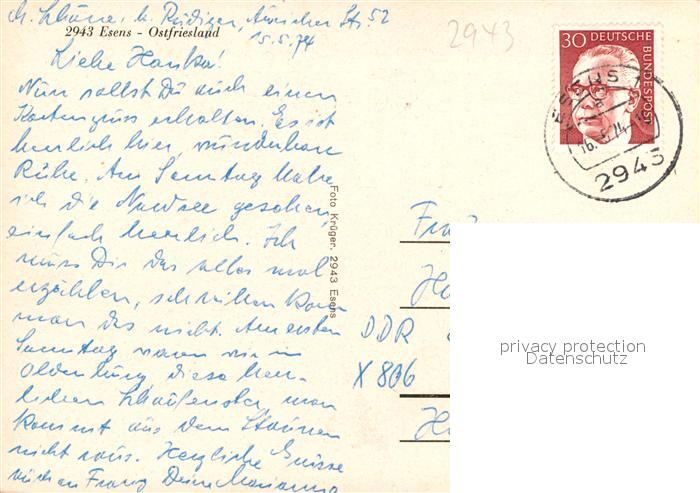 b. Rüdiger, Auricher Str. 52
2943 Esens - Ostfriesland
15.5.74
2943
30 DEUTSCHE
BUNDESPOST
ESENS
16.5.74
2943
Liebe Hanka!
Nun sollst Du auch einen
Kartengruss erhalten. Es ist
herrlich hier, wunderbare
Ruhe. Am Sonntag habe
ich die Nordsee gesehen,
einfach herrlich. Ich
muss Dir das alles mal
erzählen, schreiben kann
man das nicht. Am ersten
Sonntag waren wir in
Oldenburg diese herr-
lichen Schaufenster, man
kommt aus dem Staunen
nicht raus. Herzliche Grüsse
auch an Franz Deine Marianne
Foto Krüger, 2943 Esens
DDR
X 806
privacy protection
Datenschutz